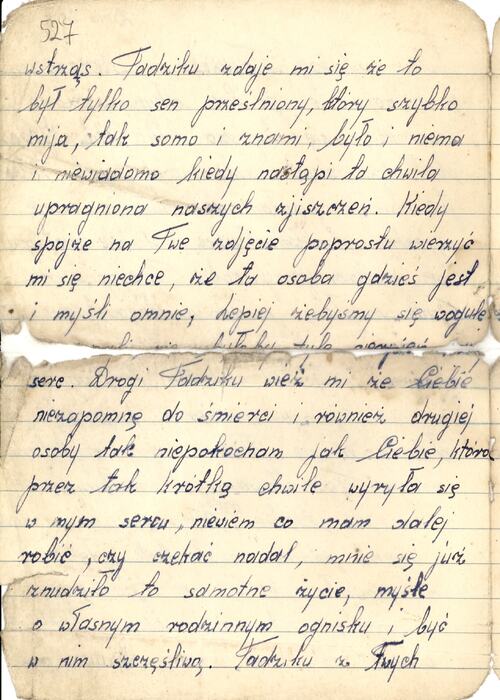 527
wstrząs. Tadziku zdaje mi się że to
był tylko sen prześniony, który szybko
mija, tak somo i znami, było i niema
i niewiadomo kiedy nastąpi ta chwila
upragniona naszych zjiszczeń. Kiedy
spojże na Twe zdjęcie poprostu wierzyć
mi się niechce, że ta osoba gdzieś jest
i myśli omnie, lepiej żebyśmy się wogule
było by tyle
serc. Drogi Tadziku wież mi że Ciebie
niezapomnę do śmierci i rownież drugiej
osoby tak niepokocham jak Ciebie, która
przez tak krótką chwile wyryła się
w mym sercu, niewiem co mam dalej
robić, czy czekać nadal, mnie się już
znudziło to samotne życie, myślę
o własnym rodzinnym ognisku i być
w nim szczęśliwą. Tadziku z Twych